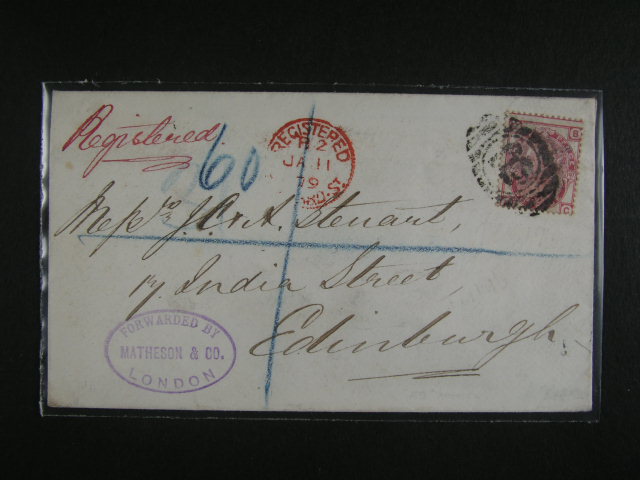 Registered.
60
REGISTERED
R 2
JA 11
79
ARD. ST.
Messrs J. C. & A. Steuart,
17, India Street,
Edinburgh.
FORWARDED BY
MATHESON & CO.
LONDON
B
G